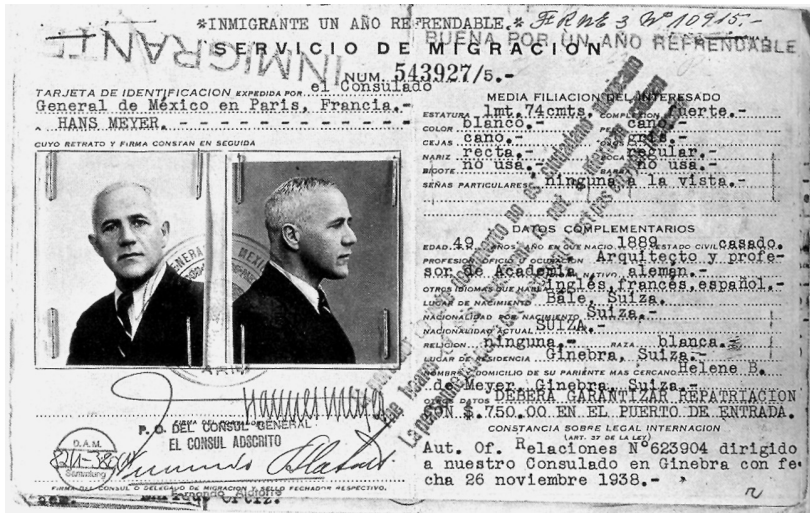 *INMIGRANTE UN AÑO REFRENDABLE.*
BUENA POR UN AÑO REFRENDABLE
INMIGRANTE
SERVICIO DE MIGRACION
NUM. 543927/5.-
TARJETA DE IDENTIFICACION EXPEDIDA POR el Consulado
General de México en Paris, Francia.-
A HANS MEYER.
CUYO RETRATO Y FIRMA CONSTAN EN SEGUIDA
P. O. DEL CONSUL GENERAL
EL CONSUL ADSCRITO
D.A.M.
Sammlung
FIRMA DEL CONSUL O DELEGADO DE MIGRACION Y SELLO FECHADOR RESPECTIVO.
MEDIA FILIACION DEL INTERESADO
ESTATURA 1mt.74cmts. COMPLEXION fuerte.
COLOR blanco.- cano.-
CEJAS cano.- OJOS gris.-
NARIZ recta.- BOCA regular.-
BIGOTE no usa.- BARBA no usa.-
SEÑAS PARTICULARES ninguna a la vista.-
DATOS COMPLEMENTARIOS
EDAD 49 AÑOS. AÑO EN QUE NACIO 1889 ESTADO CIVIL casado.
PROFESION, OFICIO U OCUPACION Arquitecto y profe-
sor de Academia NATIVO alemán.-
OTROS IDIOMAS QUE HABLA inglés, francés, español.-
LUGAR DE NACIMIENTO Bâle, Suiza.
NACIONALIDAD POR NACIMIENTO Suiza.-
NACIONALIDAD ACTUAL SUIZA.-
RELIGION ninguna.- RAZA blanca.
LUGAR DE RESIDENCIA Ginebra, Suiza.-
NOMBRE Y DOMICILIO DE SU PARIENTE MAS CERCANO Helene B.
de Meyer, Ginebra, Suiza.-
OTROS DATOS DEBERA GARANTIZAR REPATRIACION
CON $.750.00 EN EL PUERTO DE ENTRADA.
CONSTANCIA SOBRE LEGAL INTERNACION
(ART. 37 DE LA LEY)
Aut. Of. Relaciones Nº623904 dirigido
a nuestro Consulado en Ginebra con fe
cha 26 noviembre 1938.-